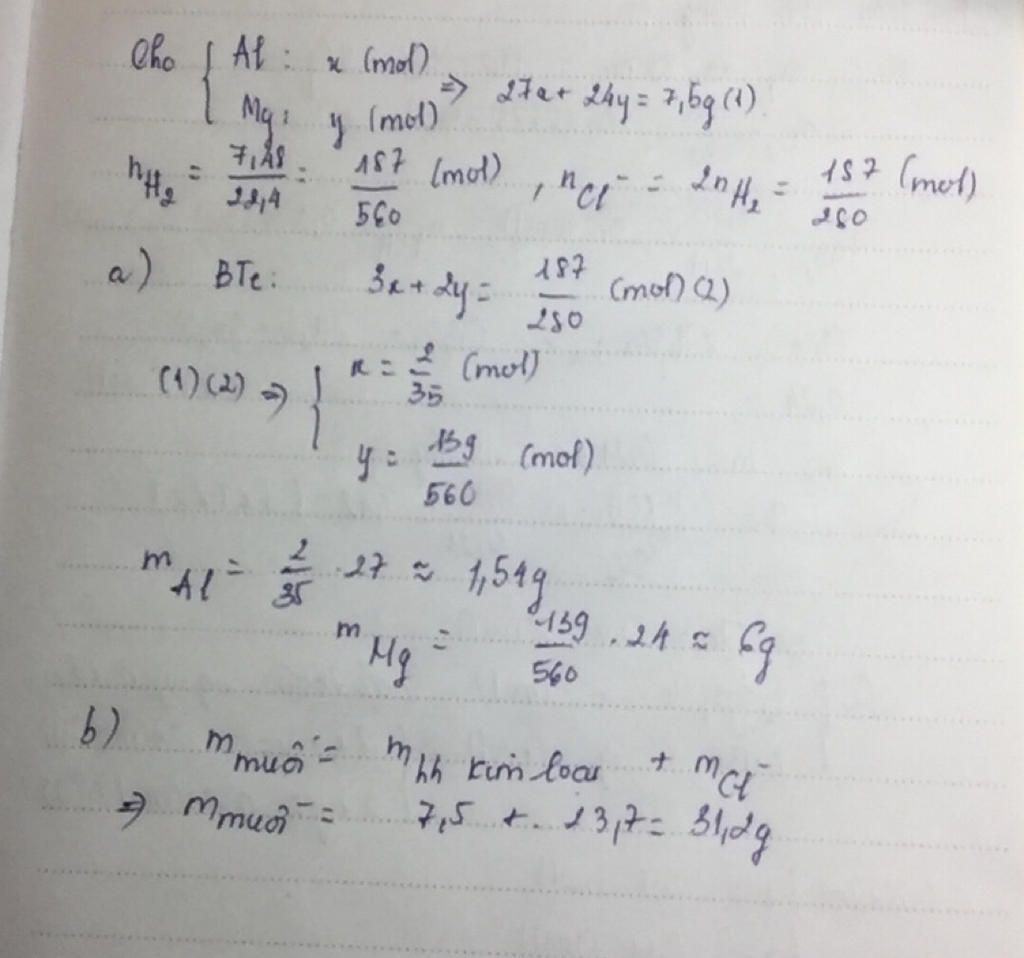 Cho { Al : x (mol)
Mg : y (mol) => 27x + 24y = 7,5g (1)
nH₂ = 7,48/22,4 = 187/560 (mol) , nCl⁻ = 2nH₂ = 187/280 (mol)
a) BTe: 3x + 2y = 187/280 (mol) (2)
(1)(2) => { x = 2/35 (mol)
y = 139/560 (mol)
mAl = 2/35 . 27 ≈ 1,54g
mMg = 139/560 . 24 ≈ 6g
b) m muối = m hh kim loại + mCl⁻
=> m muối = 7,5 + 23,7 = 31,2g